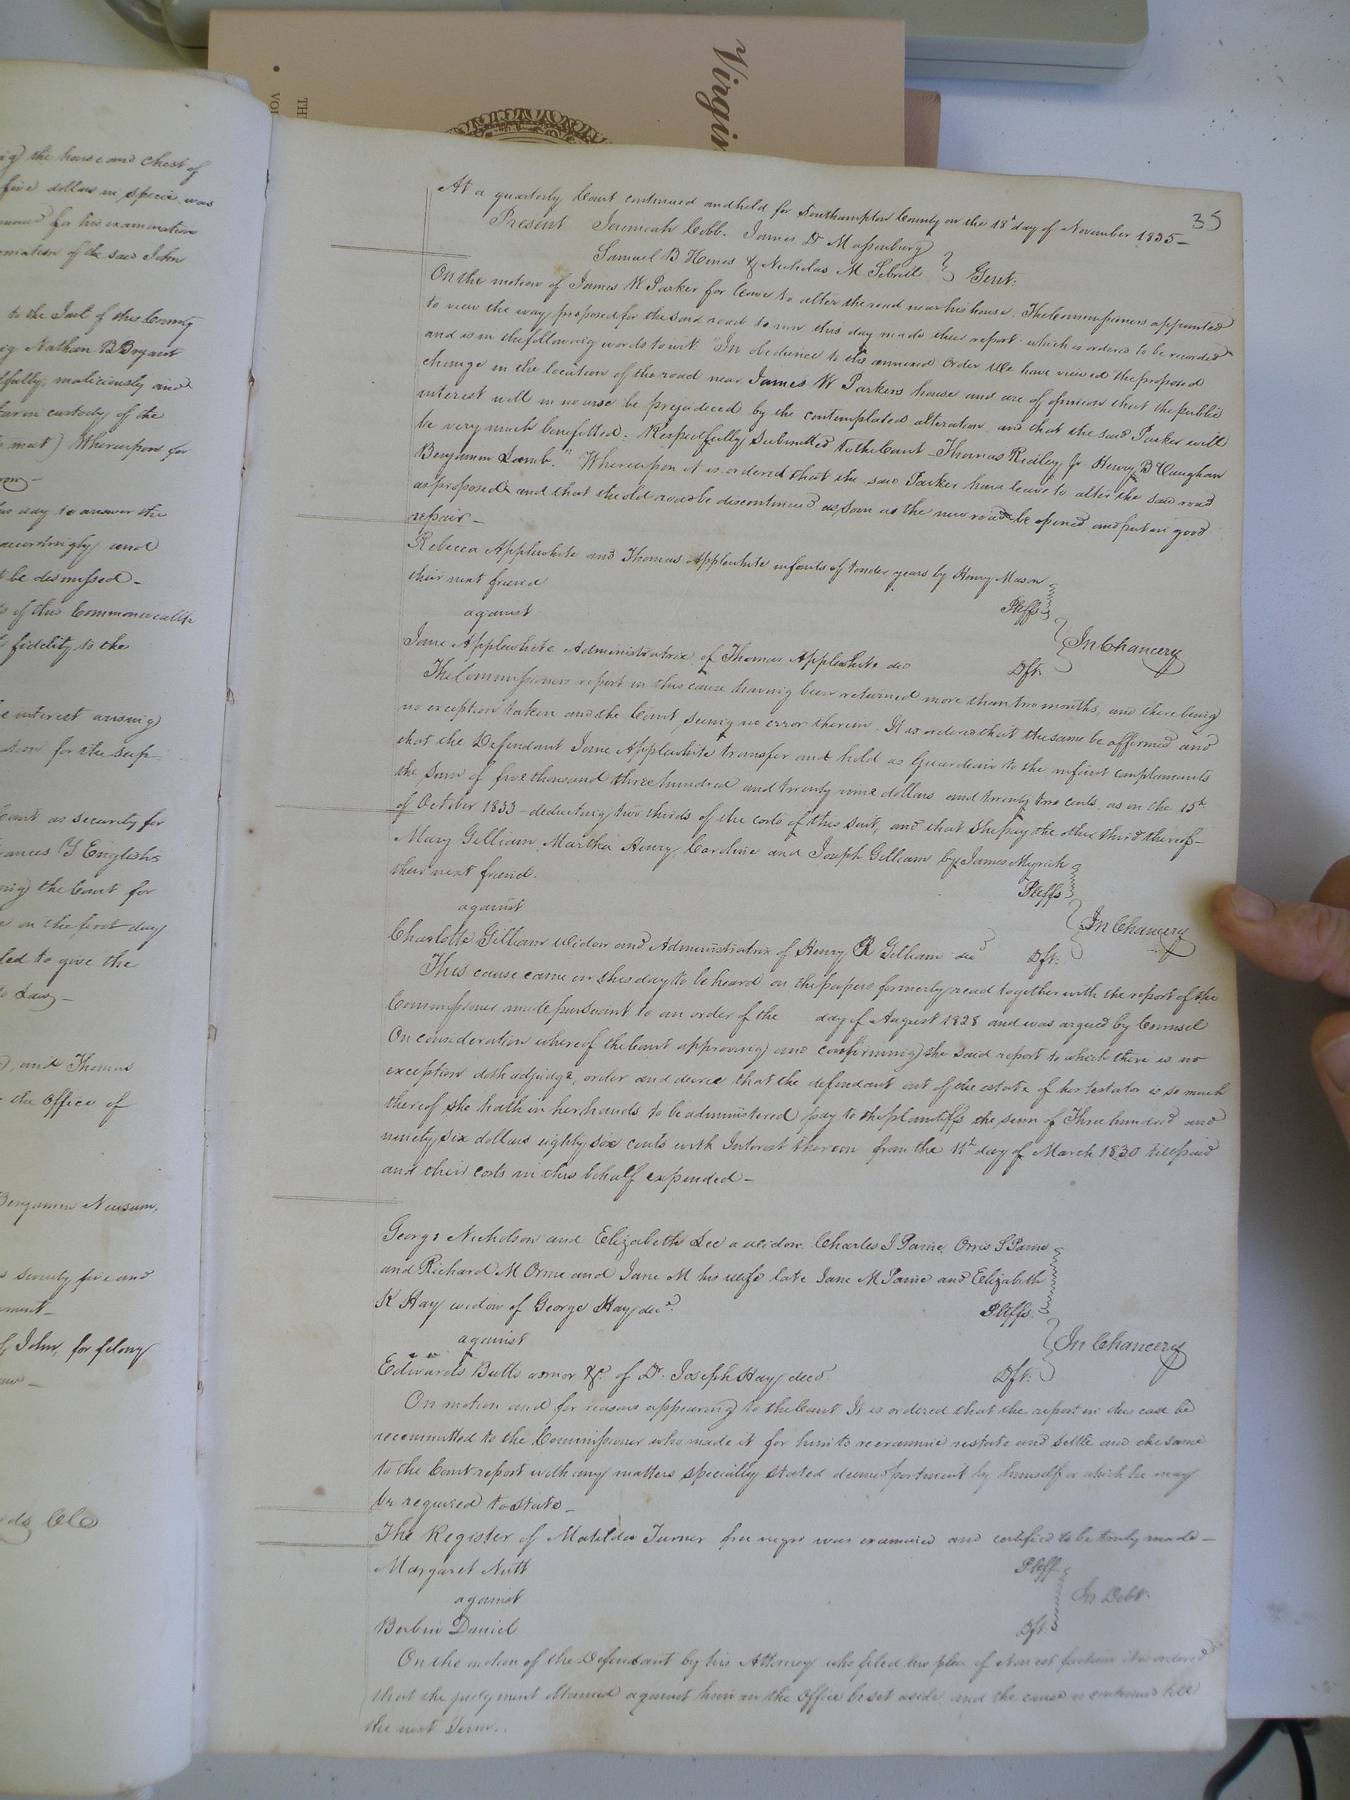 Virgin
TH
VO
ing the house and chest of
five dollars in specie was
for his examination
of the said John
to the Jail of this County
Nathan B Bryant
maliciously and
in custody of the
Whereupon for
day to answer the
accordingly and
be dismissed -
of this Commonwealth
fidelity to the
interest arising
son for the sup-
Court as security for
ances Y English
the Court for
on the first day
led to give the
to Law -
and Thomas
the office of
Benjamin Newsum,
seventy five and
John, for felony
35
At a quarterly Court continued and held for Southampton County on the 18th day of November 1835 -
Present Jeremiah Cobb. James D Massenburg
Samuel B Hines & Nicholas M Sebrell } Gent.
On the motion of James W Parker for leave to alter the road near his house. The Commissioners appointed
to view the way proposed for the said road to run this day made their report which is ordered to be recorded
and is in the following words to wit "In obedience to the annexed order We have viewed the proposed
change in the location of the road near James W Parkers house and are of opinion that the public
interest will in no wise be prejudiced by the contemplated alteration and that the said Parker will
be very much benefitted: Respectfully Submitted to the Court - Thomas Ridley Jr Henry B Vaughan
Benjamin Lamb." Whereupon it is ordered that the said Parker have leave to alter the said road
as proposed and that the old road be discontinued as soon as the new road be opened and put in good
repair -
Rebecca Applewhite and Thomas Applewhite infants of tender years by Henry Mason
their next friend Pltffs
against } In Chancery
Jane Applewhite Administratrix of Thomas Applewhite dec Dft.
The Commissioners report in this cause having been returned more than two months, and there being
no exception taken and the Court seeing no error therein. It is ordered that the same be affirmed and
that the Defendant Jane Applewhite transfer and hold as Guardian to the infant complainants
the sum of five thousand three hundred and twenty nine dollars and twenty two cents, as on the 15th
of October 1833 - deducting two thirds of the costs of this suit, and that she pay the other third thereof -
Mary Gilliam, Martha Henry, Caroline and Joseph Gilliam by James Myrick
their next friend. Pltffs
against } In Chancery
Charlotte Gilliam widow and Administratrix of Henry R Gilliam decd Dft.
This cause came on this day to be heard on the papers formerly read together with the report of the
Commissioner made pursuant to an order of the day of August 1828 and was argued by Counsel
On consideration whereof the Court approving and confirming the said report to which there is no
exception doth adjudge, order and decree that the defendant out of the estate of her testator if so much
thereof she hath in her hands to be administered pay to the plaintiffs the sum of Three hundred and
ninety six dollars eighty six cents with Interest thereon from the 11th day of March 1830 till paid
and their costs in this behalf expended -
George Nicholson and Elizabeth Lee a widow Charles I Paine, Orris S Paine
and Richard M Orme and Jane M his wife late Jane M Paine and Elizabeth
K Hay widow of George Hay decd. Pltffs.
against } In Chancery
Edwards Butts admor &c of Dr. Joseph Hay decd Dft.
On motion and for reasons appearing to the Court It is ordered that the report in this case be
recommitted to the Commissioner who made it for him to reexamine restate and settle and the same
to the Court report with any matters specially stated deemed pertinent by himself or which he may
be required to state -
The Register of Matilda Turner free negro was examined and certified to be truly made -
Margaret Nutt Pltff
against } In Debt.
Berbin Daniel Dft.
On the motion of the Defendant by his Attorney who filed his plea of Non est factum it is ordered
that the judgment obtained against him in the Office be set aside and the cause is continued till
the next Term.